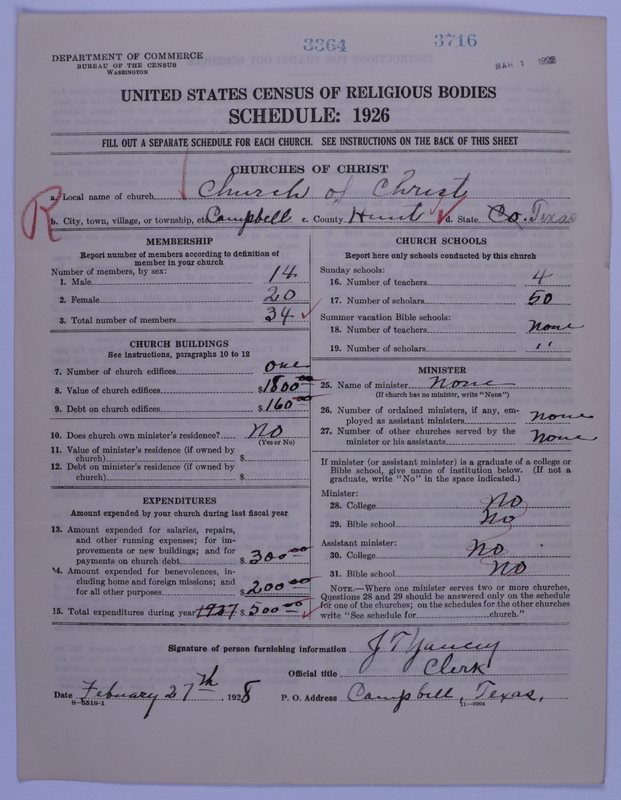 3364 3716
DEPARTMENT OF COMMERCE
BUREAU OF THE CENSUS
WASHINGTON
MAR 1 1928
UNITED STATES CENSUS OF RELIGIOUS BODIES
SCHEDULE: 1926
FILL OUT A SEPARATE SCHEDULE FOR EACH CHURCH. SEE INSTRUCTIONS ON THE BACK OF THIS SHEET
CHURCHES OF CHRIST
R
a. Local name of church Church of Christ
b. City, town, village, or township, etc Campbell c. County Hunt d. State Co. Texas
MEMBERSHIP
Report number of members according to definition of
member in your church
Number of members, by sex:
1. Male 14
2. Female 20
3. Total number of members 34
CHURCH BUILDINGS
See instructions, paragraphs 10 to 12
7. Number of church edifices one
8. Value of church edifices $1800.00
9. Debt on church edifices $160.00
10. Does church own minister's residence? No
(Yes or No)
11. Value of minister's residence (if owned by
church) $
12. Debt on minister's residence (if owned by
church) $
EXPENDITURES
Amount expended by your church during last fiscal year
13. Amount expended for salaries, repairs,
and other running expenses; for im-
provements or new buildings; and for
payments on church debt $300.00
14. Amount expended for benevolences, in-
cluding home and foreign missions; and
for all other purposes $200.00
15. Total expenditures during year 1927 $500.00
CHURCH SCHOOLS
Report here only schools conducted by this church
Sunday schools:
16. Number of teachers 4
17. Number of scholars 50
Summer vacation Bible schools:
18. Number of teachers none
19. Number of scholars "
MINISTER
25. Name of minister None
(If church has no minister, write "None")
26. Number of ordained ministers, if any, em-
ployed as assistant ministers none
27. Number of other churches served by the
minister or his assistants None
If minister (or assistant minister) is a graduate of a college or
Bible school, give name of institution below. (If not a
graduate, write "No" in the space indicated.)
Minister:
28. College No
29. Bible school No
Assistant minister:
30. College No
31. Bible school No
NOTE.—Where one minister serves two or more churches,
Questions 28 and 29 should be answered only on the schedule
for one of the churches; on the schedules for the other churches
write "See schedule for church."
Signature of person furnishing information J T Yancey
Official title Clerk
Date February 27th, 1928 P. O. Address Campbell, Texas,
8-5518-1 11-9904